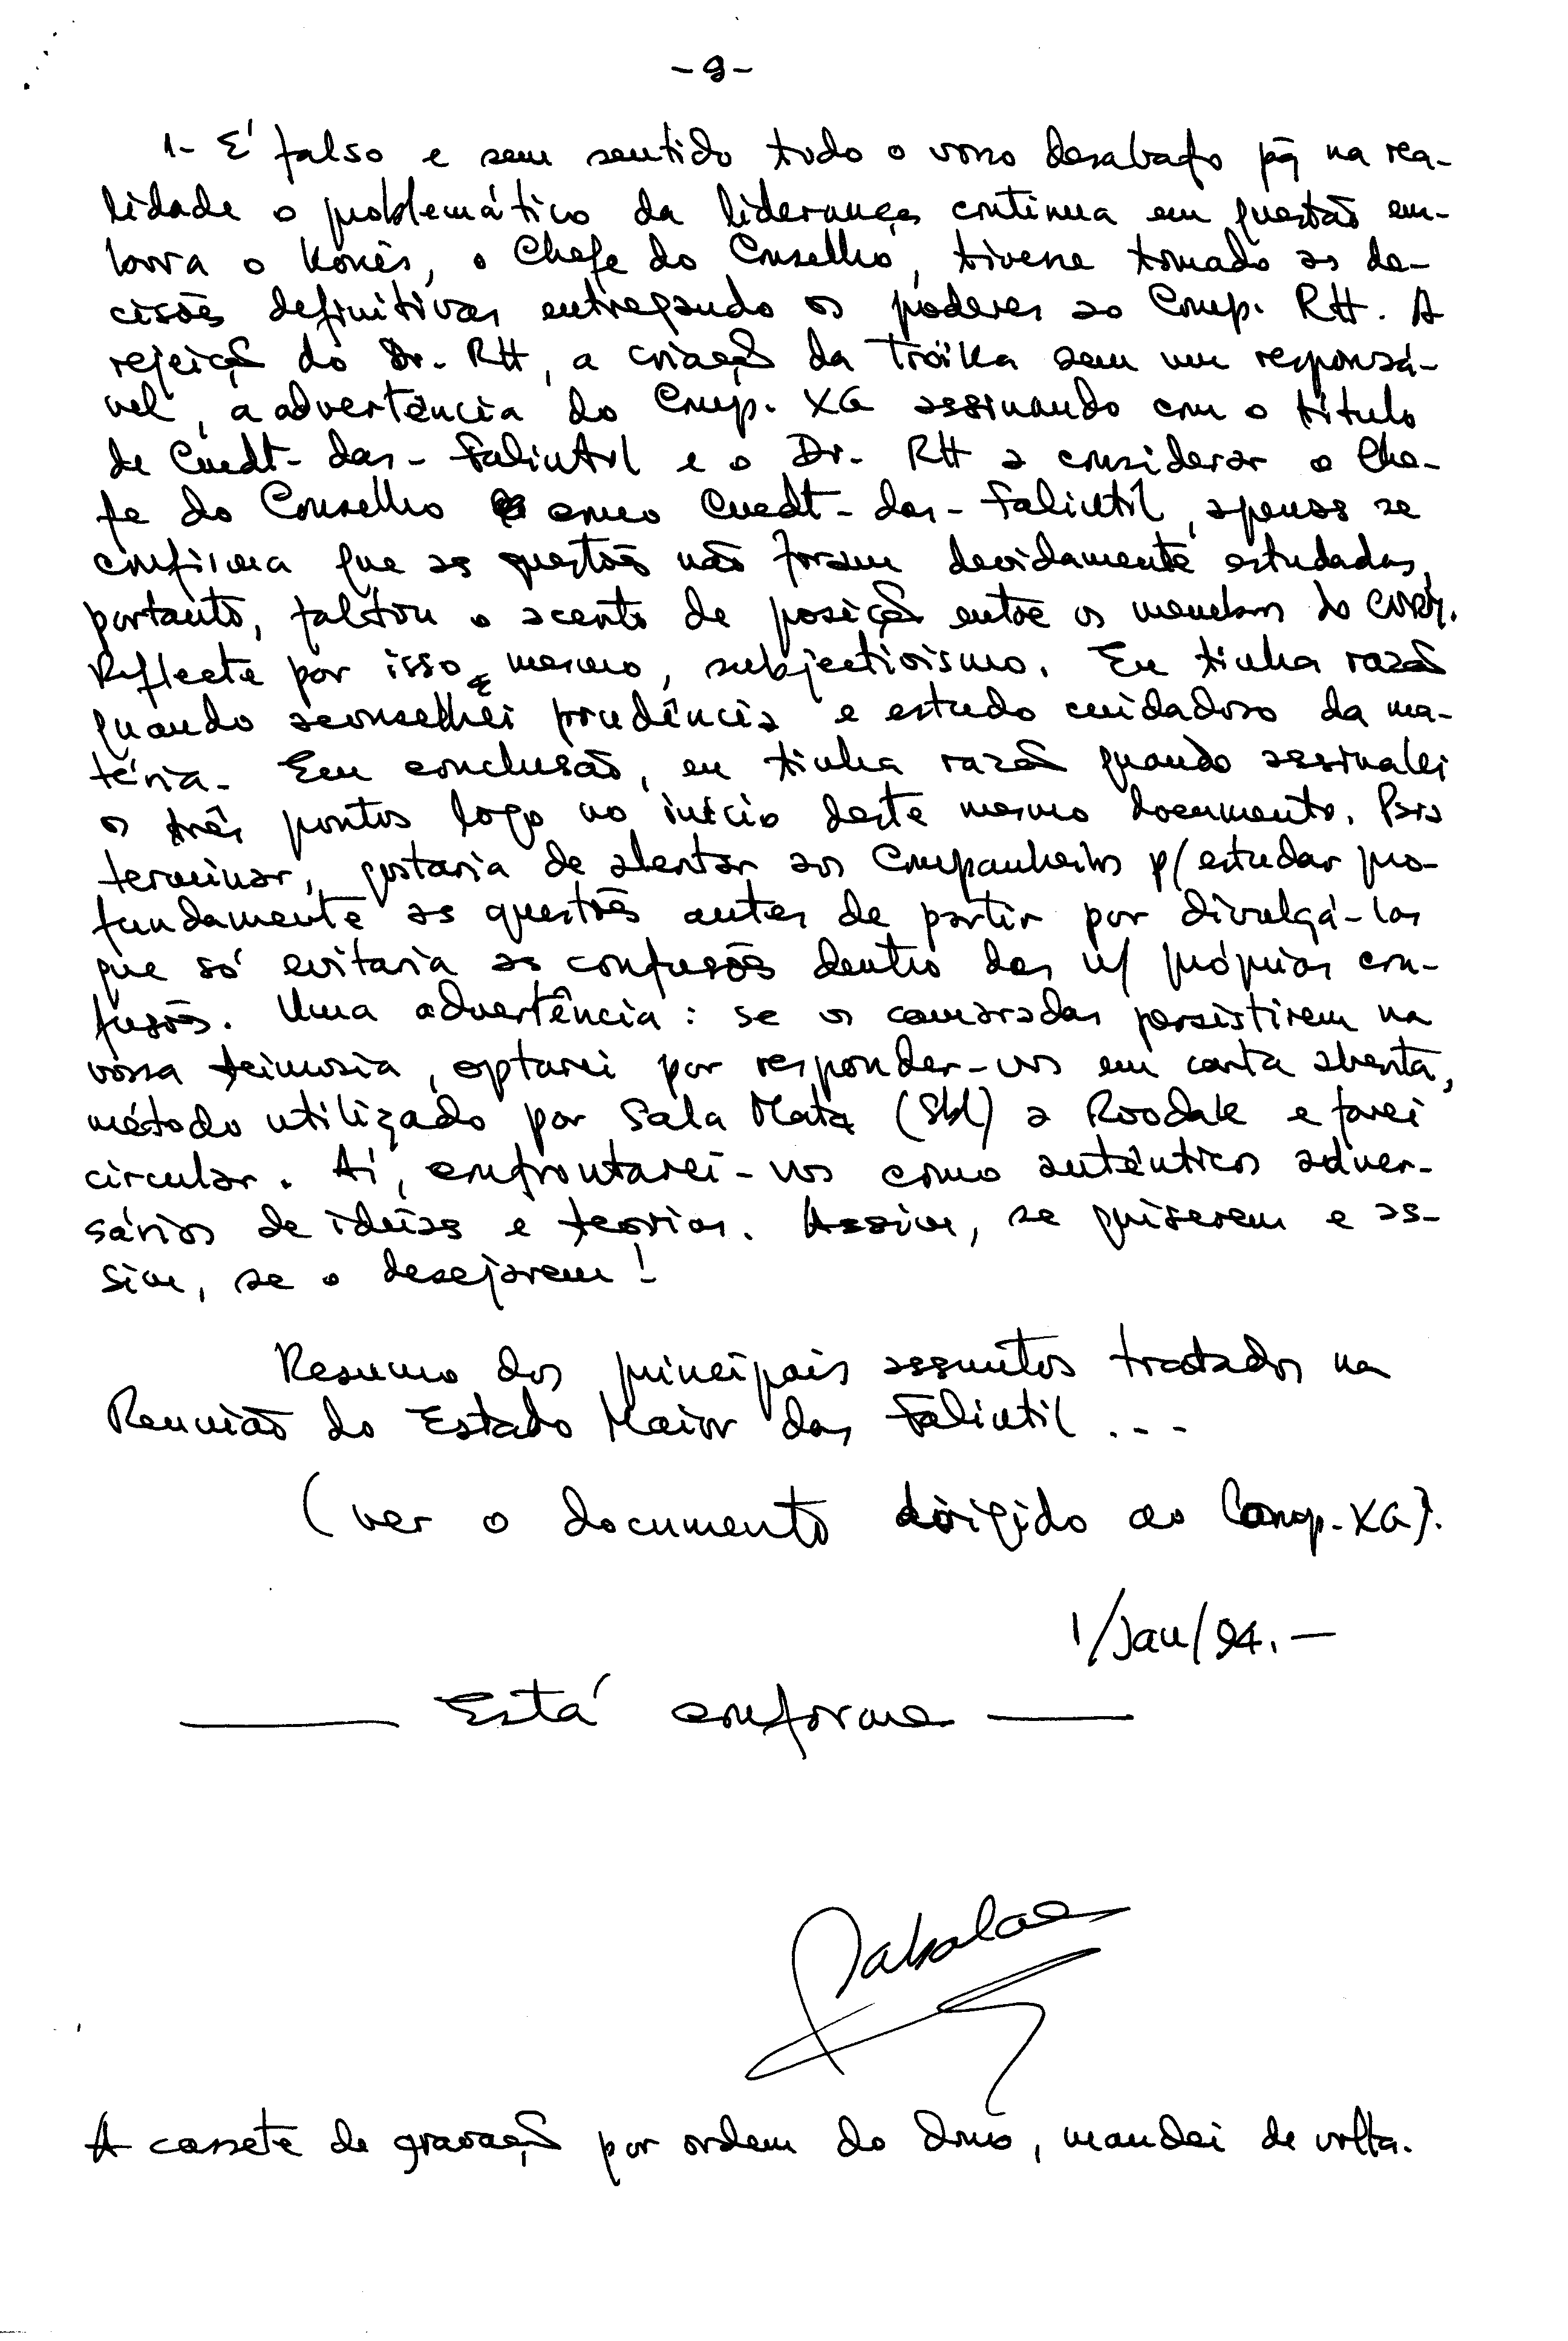 - 9 -
1- É falso e sem sentido todo o vosso desabafo pq̃ na rea-
lidade o problemático da liderança continua em questão em-
bora o Konis, o Chefe do Conselho, tivesse tomado as de-
cisões definitivas entregando os poderes ao Comp. RH. A
rejeição do Dr. RH, a criação da Tróika sem um responsá-
vel, a advertência do Comp. XG assinando com o título
de Cmdt-das-Falintil e o Dr. RH a considerar o Che-
fe do Conselho como Cmdt-das-Falintil, apenas se
confirma que as questões não foram devidamente estudadas,
portanto, faltou o acento de posição entre os membros do
Reflecte por isso mesmo, subjectivismo. Eu tinha razão
quando aconselhei prudência e estudo cuidadoso da ma-
téria. Em conclusão, eu tinha razão quando assinalei
os três pontos logo no início deste mesmo documento. Para
terminar, gostaria de alentar aos Companheiros p/ estudar pro-
fundamente as questões antes de partir por divulgá-las
que só evitaria as confusões dentro das n/ próprias con-
fusões. Uma advertência: se os camaradas persistirem na
vossa teimosia, optarei por responder-vos em carta aberta,
método utilizado por Sala Mata (Skl) a Roodak e farei
circular. Aí, confrontarei-vos como autênticos adver-
sários de ideias e teorias. Assim, se quiserem e as-
sim, se o desejarem!
Resumo dos principais assuntos tratados na
Reunião do Estado Maior das Falintil...
(ver o documento dirigido ao Comp. XG).
1/Jan/94.-
Está conforme
A cassete de gravação por ordem do dono, mandei de volta.